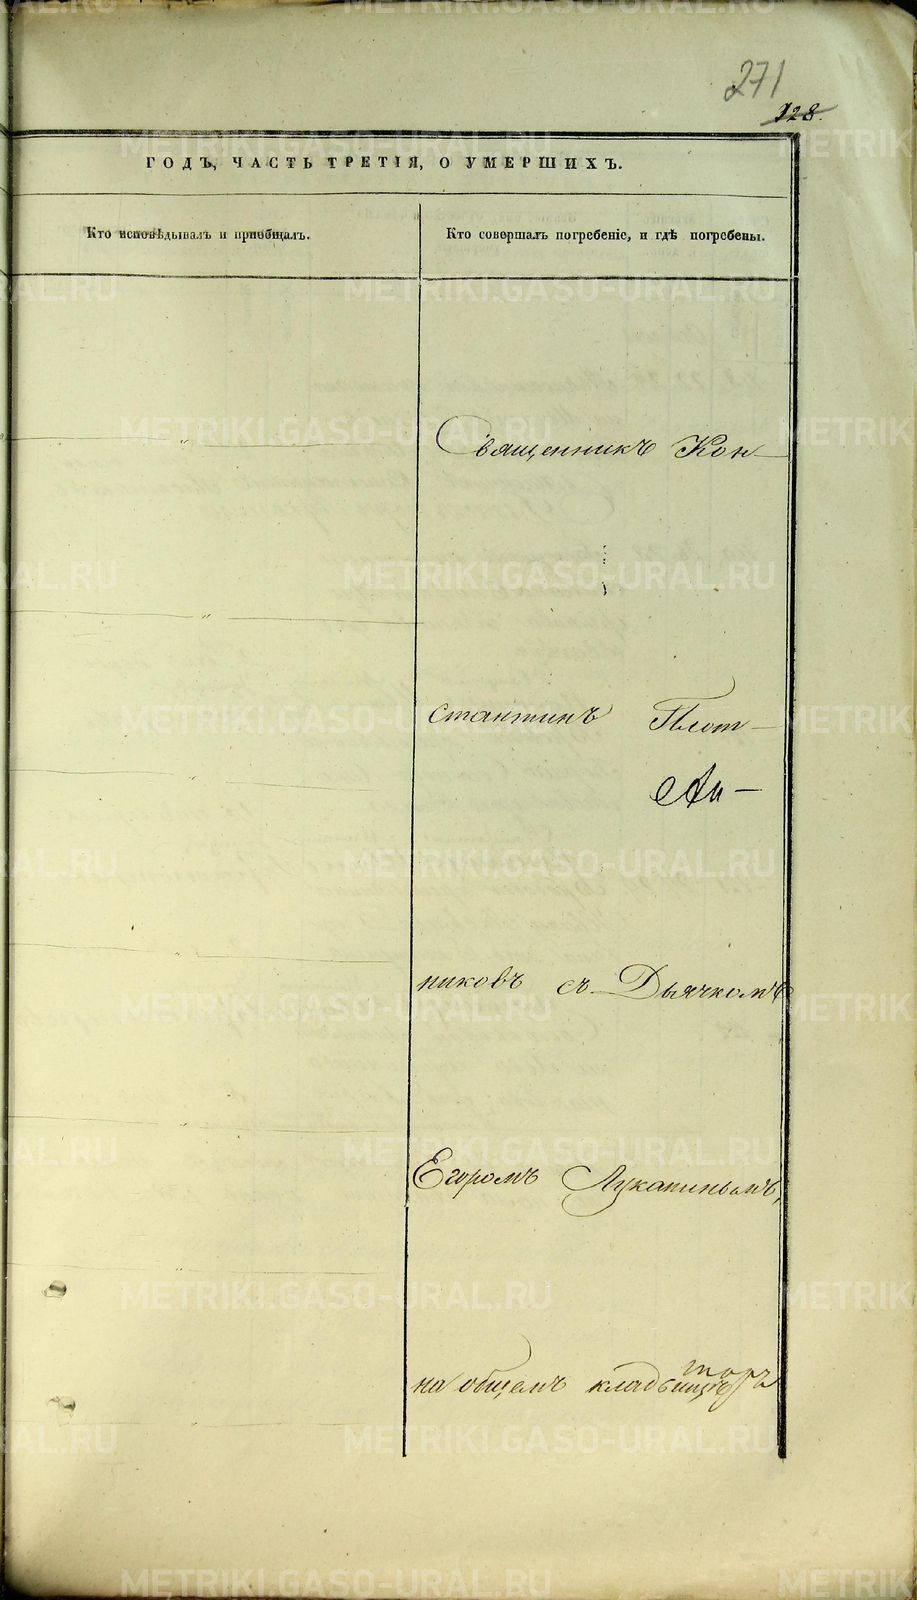 271
128.
ГОДЪ, ЧАСТЬ ТРЕТІЯ, О УМЕРШИХЪ.
Кто исповѣдывалъ и приобщалъ.
Кто совершалъ погребеніе, и гдѣ погребены.
Священникъ Кон-
стантинъ Плот-
никовъ съ Дьячкомъ
Егоромъ Лукапинымъ,
на общемъ кладбищѣ
METRIKI.GASO-URAL.RU